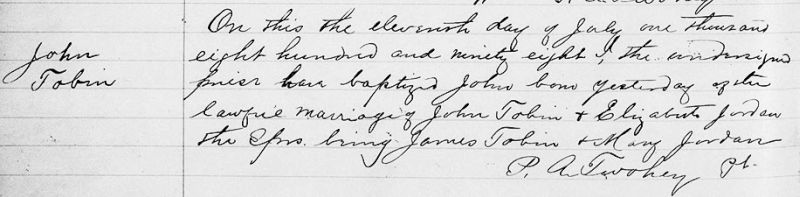 On this the eleventh day of July one thousand
eight hundred and ninety eight I, the undersigned
John
Tobin
priest have baptized John born yesterday of the
lawful marriage of John Tobin & Elizabeth Jordan
the Sprs. being James Tobin & Mary Jordan
P. A. Twohey Pt.